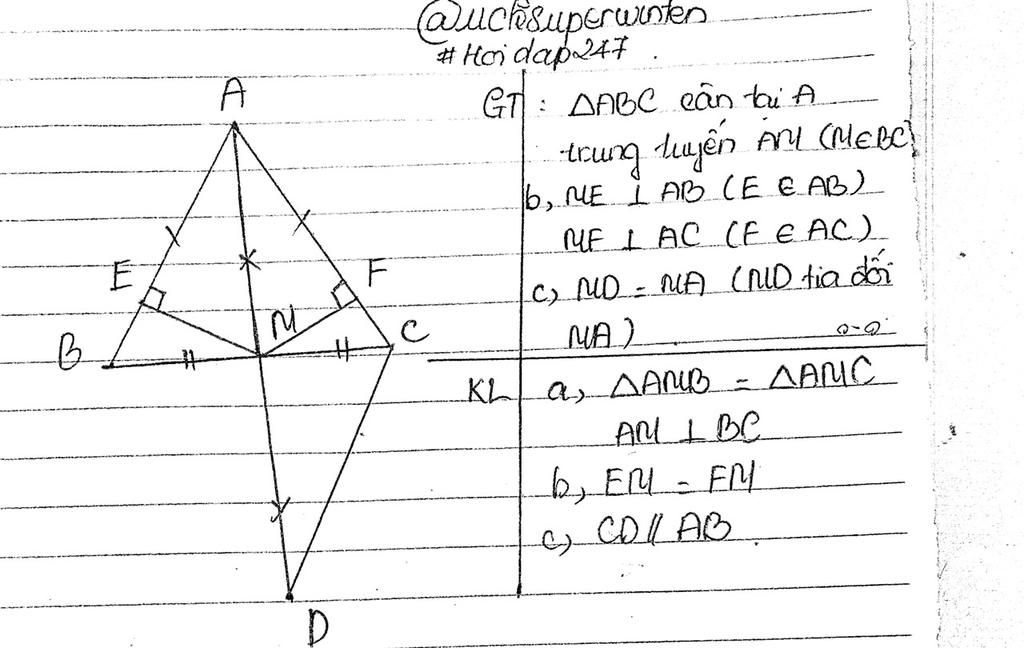 @uchisuperwinten
#Hoidap247.
A
E
F
B
M
C
D
GT: △ABC cân tại A
trung tuyến AM (M∈BC)
b, ME ⊥ AB (E ∈ AB)
MF ⊥ AC (F ∈ AC)
c, MD = MA (MD tia đối
MA)
KL a, △AMB = △AMC
AM ⊥ BC
b, EM = FM
c, CD // AB.